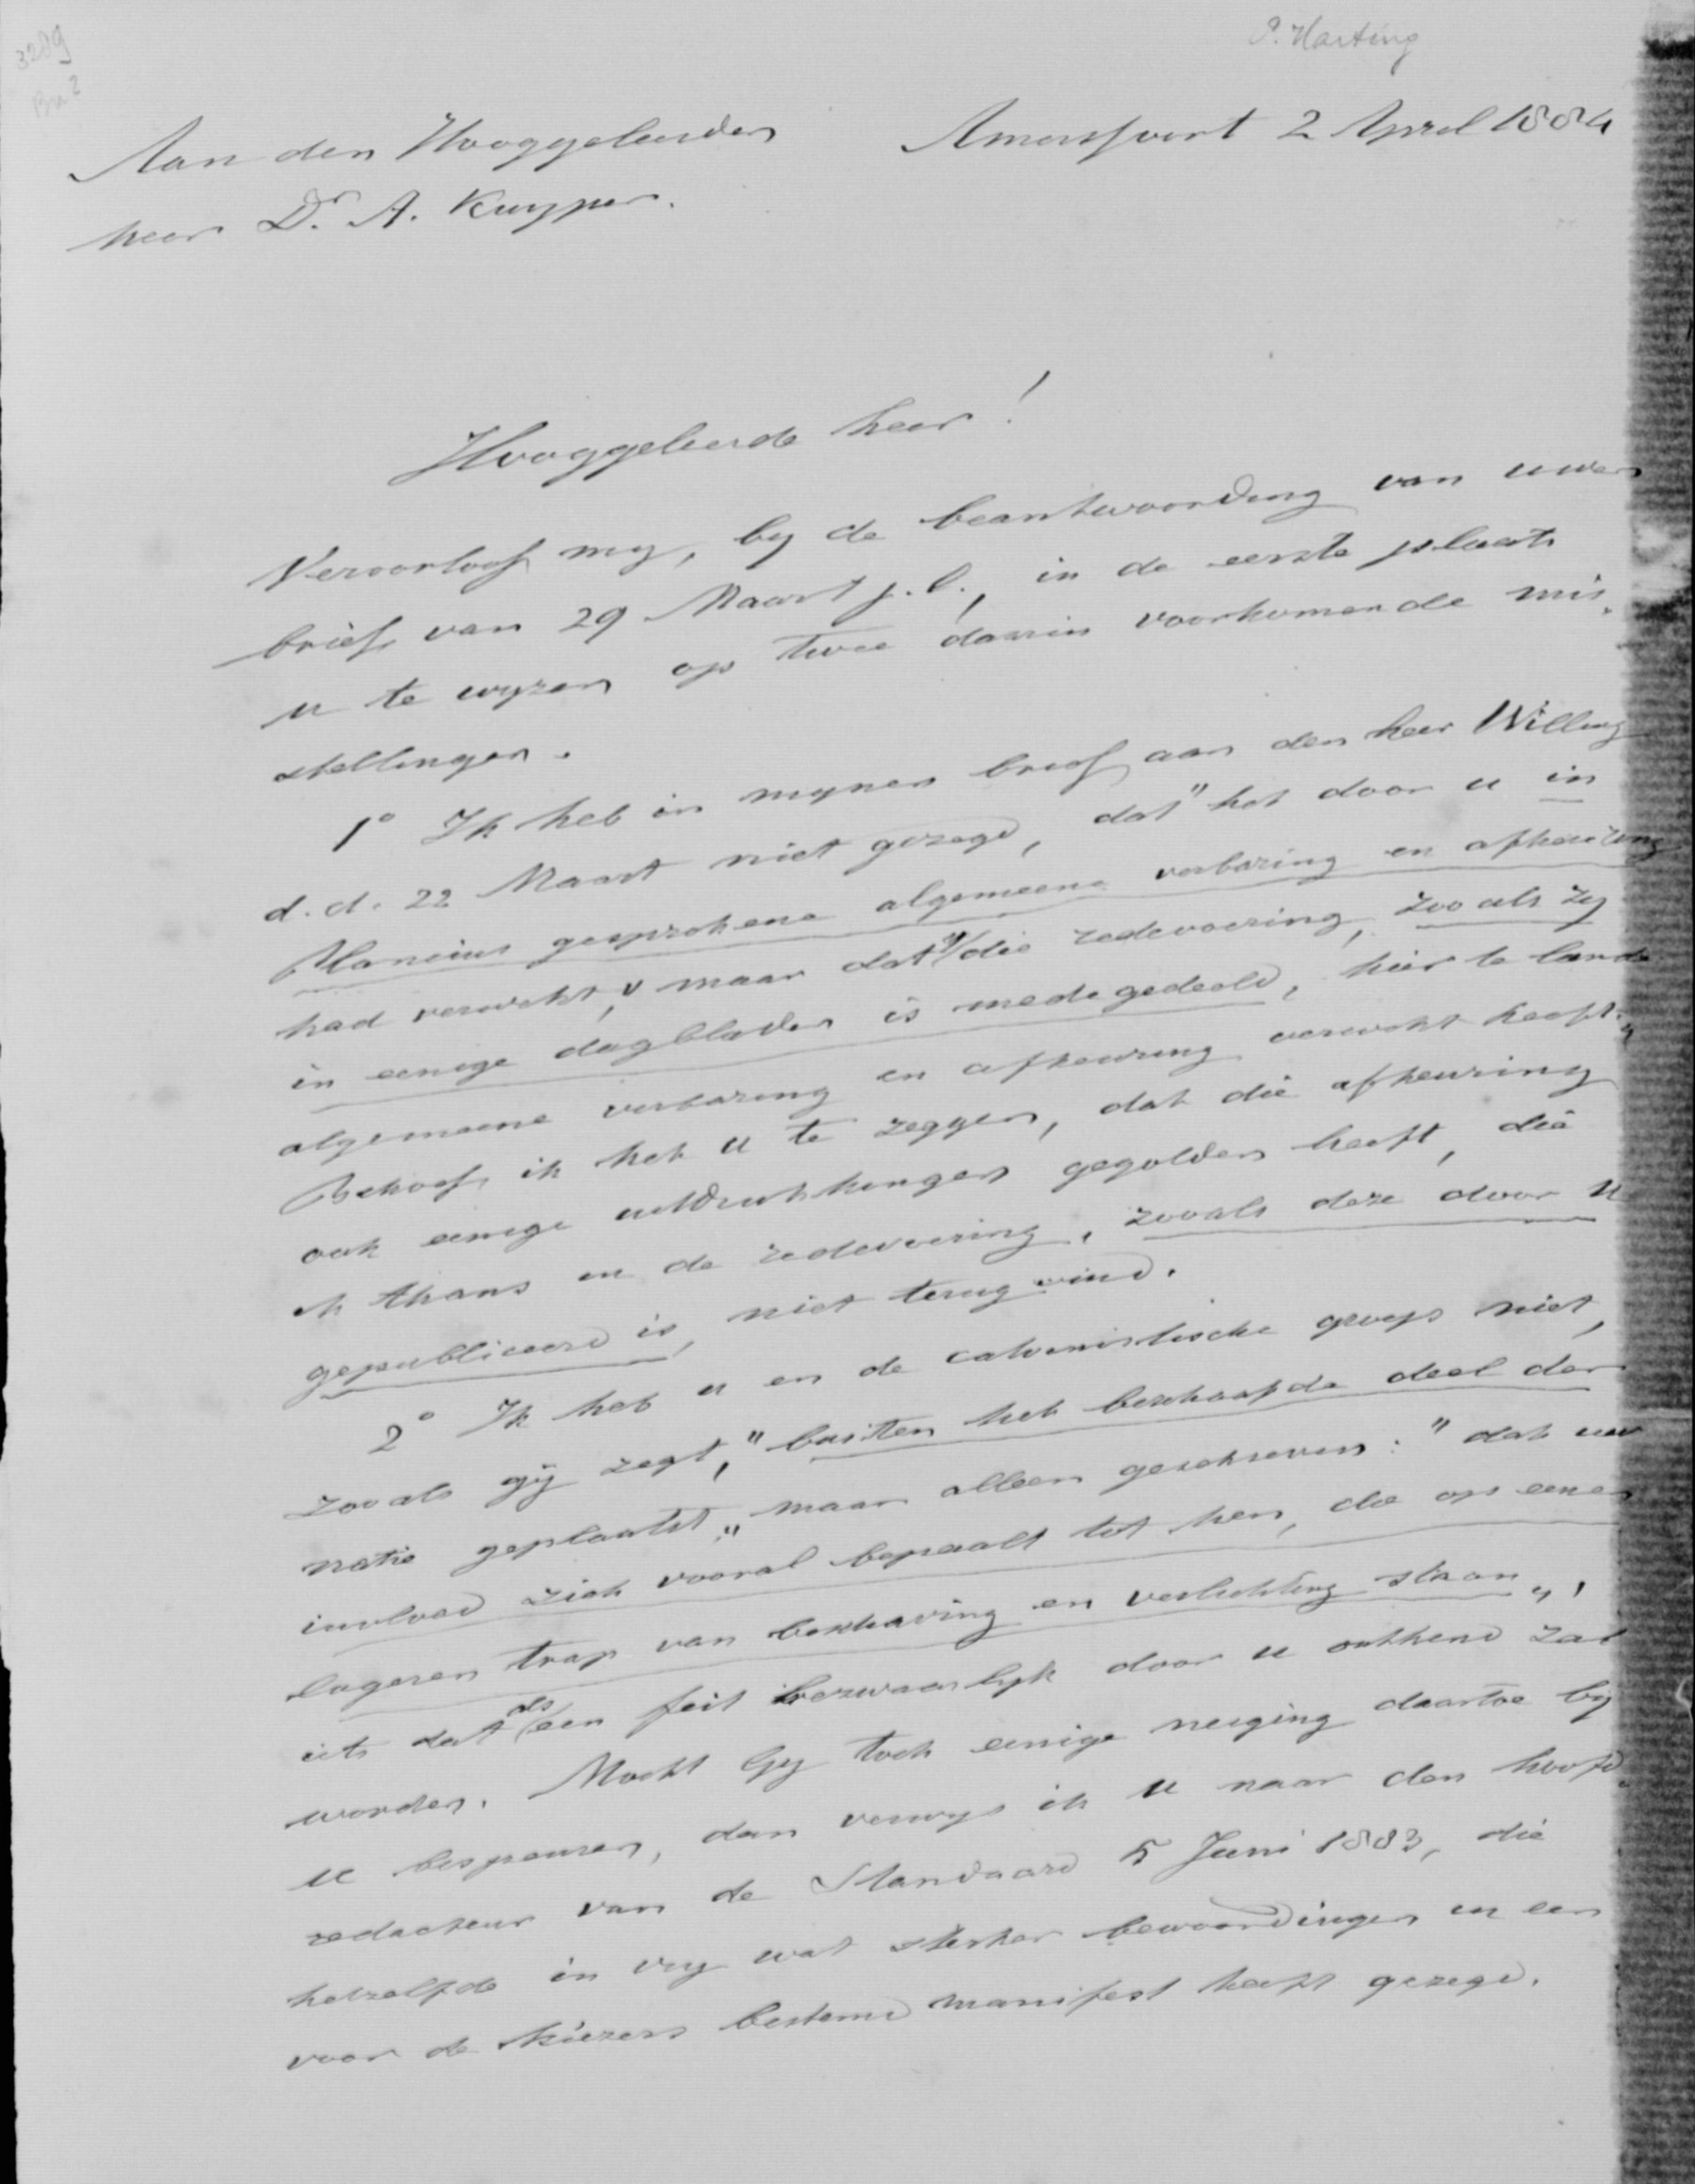 P. Harting
3289
Bu2
Aan den Hooggeleerden
heer Dr. A. Kuyper.
Amersfoort 2 April 1884
Hooggeleerde heer!
Veroorloof my, by de beantwoording van uwen
brief van 29 Maart j.l., in de eerste plaats
u te wyzen op twee daarin voorkomende mis-
stellingen.
1° Ik heb in mynen brief aan den heer Willing
d.d. 22 Maart niet gezegd, dat "het door u in
Plancius gesprokene algemeene verbazing en afkeuring
had verwekt," maar dat "die redevoering, zooals zy
in eenige dagbladen is medegedeeld, hier te lande
algemeene verbazing en afkeuring verwekt heeft."
Behoef ik het u te zeggen, dat die afkeuring
ook eenige uitdrukkingen gegolden heeft, die
ik thans in de redevoering, zooals deze door u
gepubliceerd is, niet terug vind.
2° Ik heb u en de calvinistische groep niet,
zooals gij zegt, "buiten het beschaafde deel der
natie geplaatst," maar alleen geschreven: "dat uw
invloed zich vooral bepaalt tot hen, die op eenen
lageren trap van beschaving en verlichting staan",
iets dat als een feit bezwaarlyk door u ontkend zal
worden. Mocht Gy toch eenige neiging daartoe by
u bespeuren, dan verwys ik u naar den hoofd-
redacteur van de Standaard 5 Juni 1883, die
hetzelfde in vry wat sterker bewoordingen in een
voor de kiezers bestemd manifest heeft gezegd.